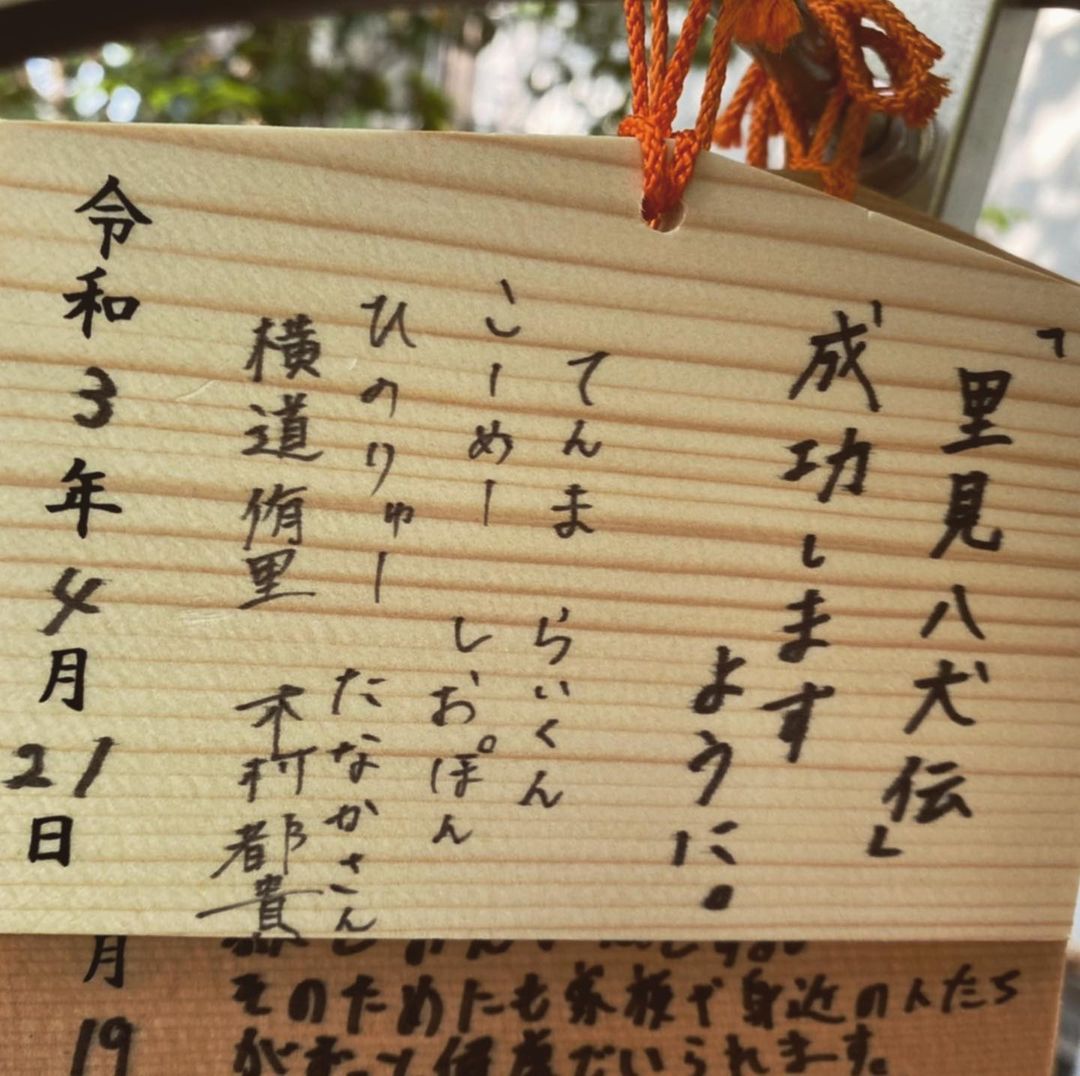 「里見八犬伝」
成功します
ように。
てんま らいくん
こーめー しおぽん
ひのりゅー たなかさん
横道侑里 木村都貴
令和3年4月21日
そのためにも家族や身近の人たち
がずっと健康でいられます。
月
19